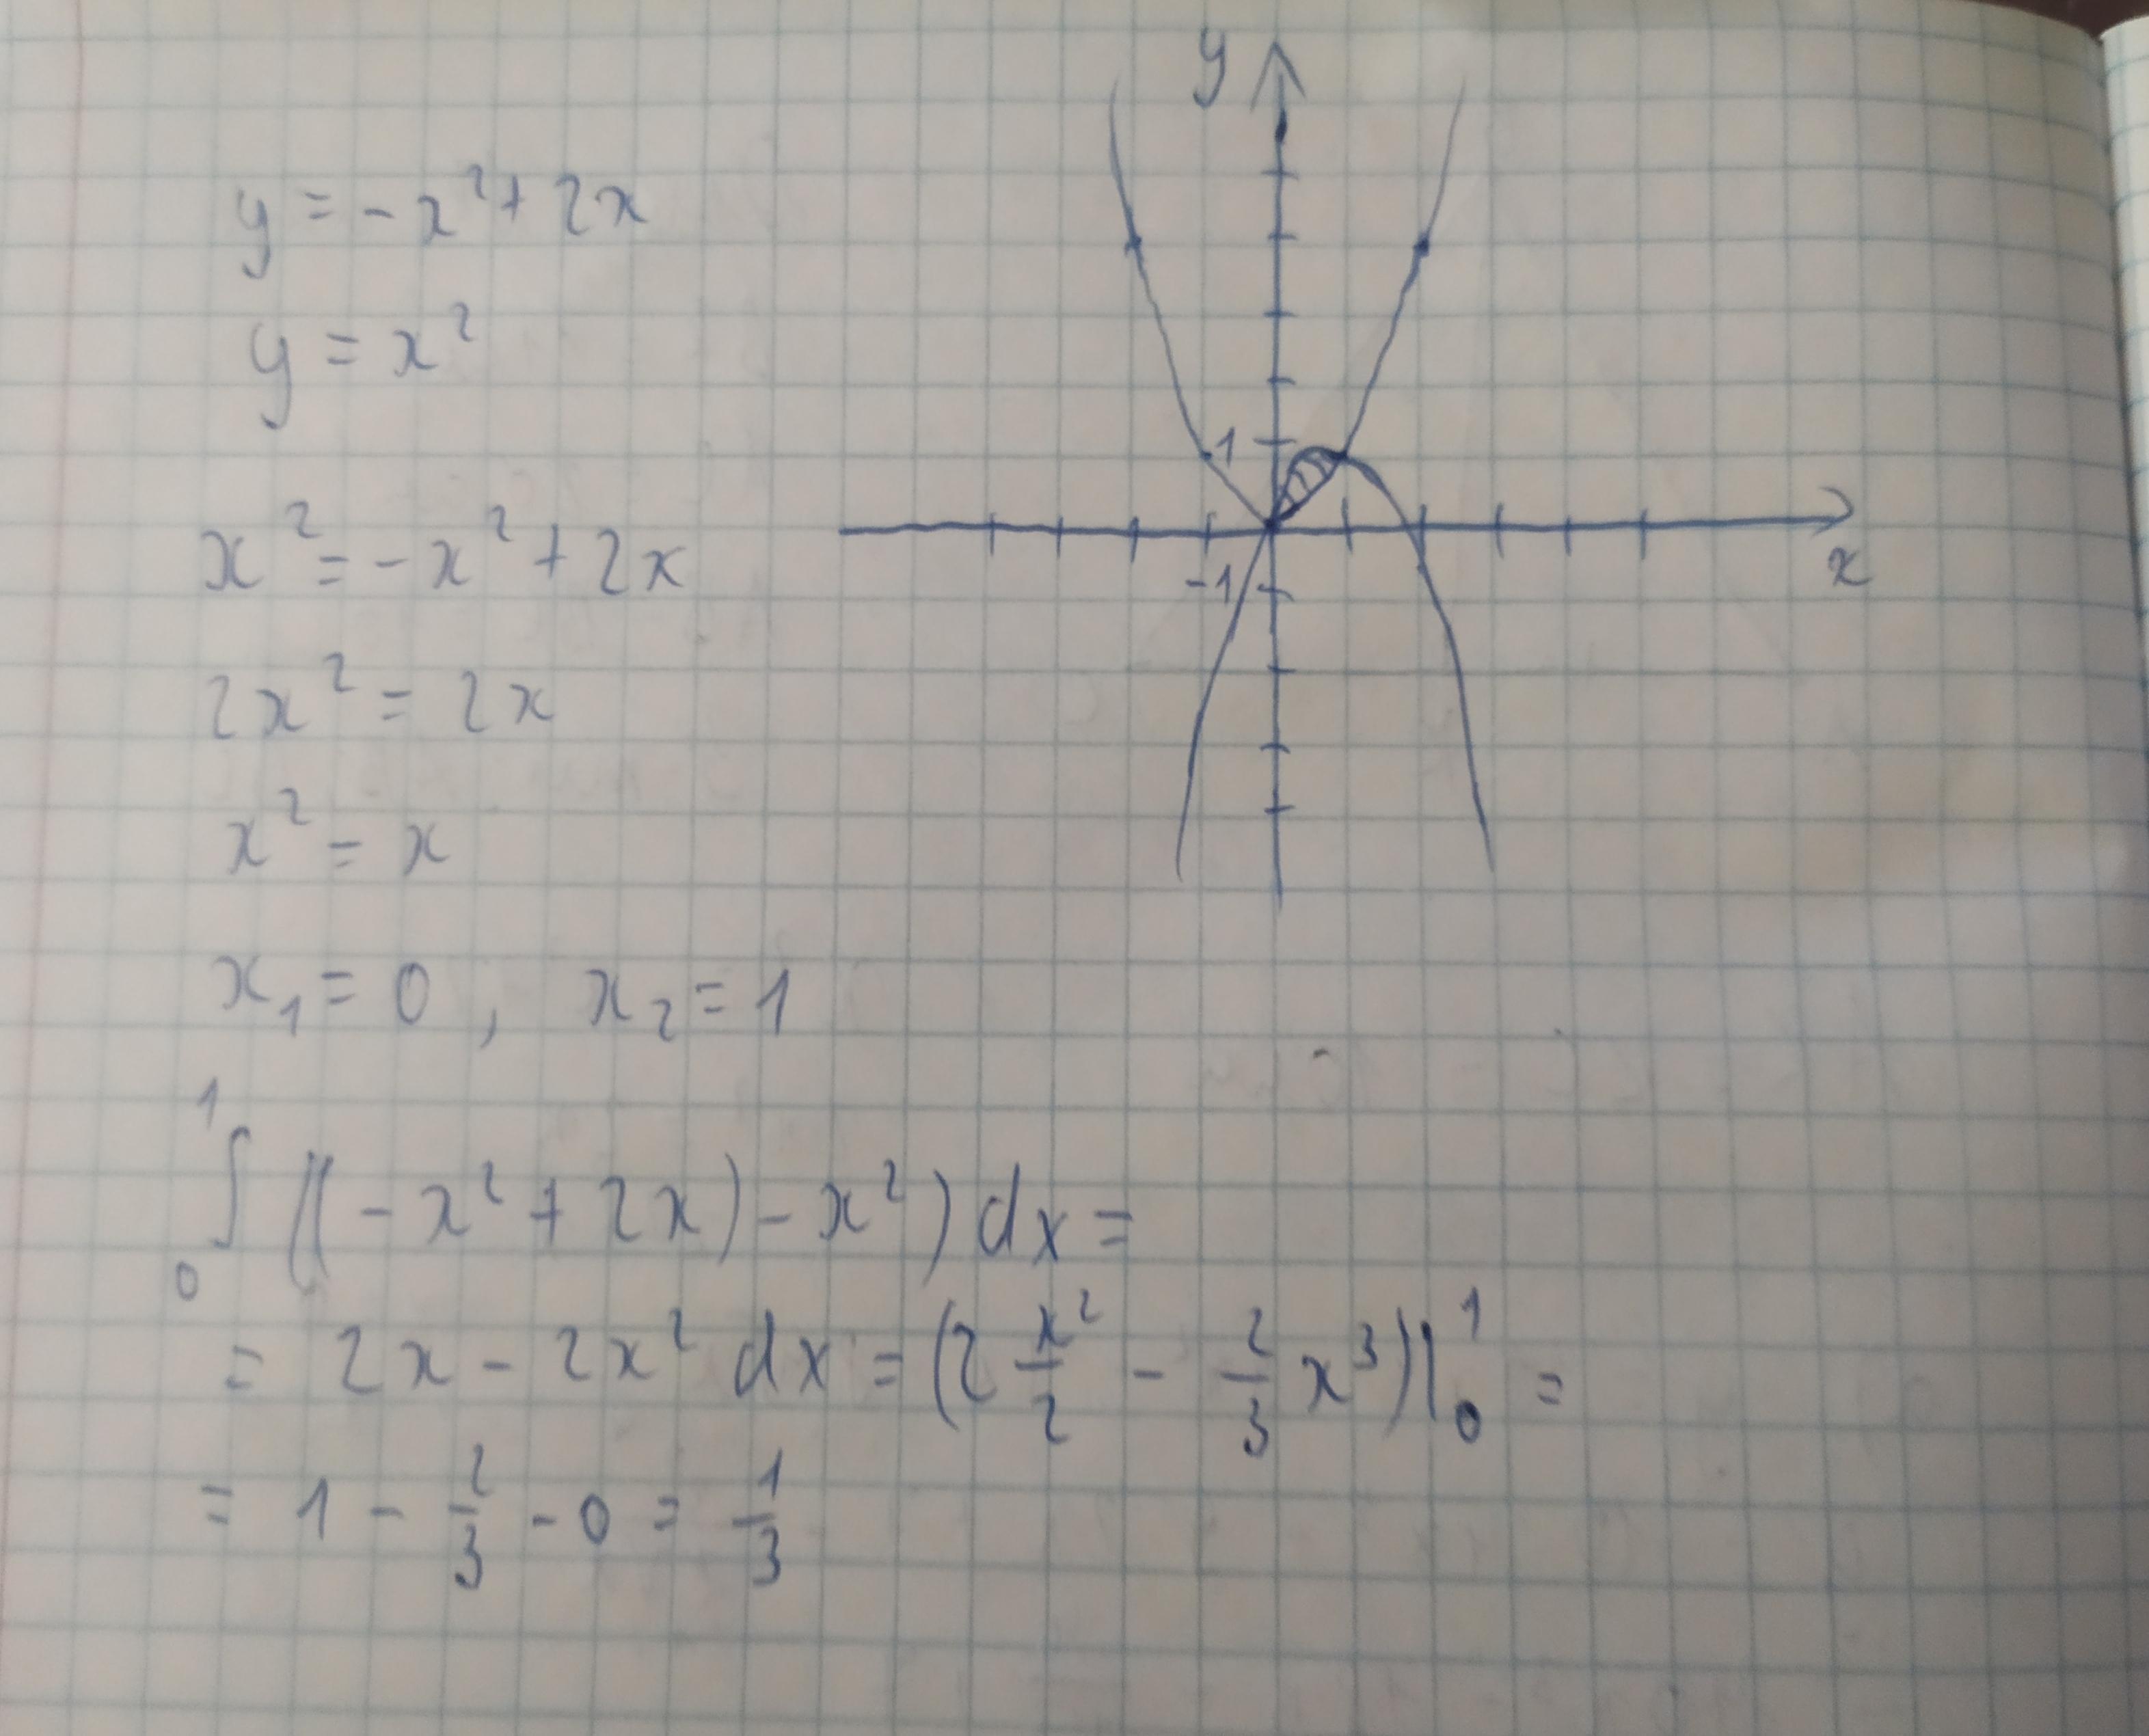 y = -x² + 2x
y = x²
x² = -x² + 2x
2x² = 2x
x² = x
x₁ = 0 , x₂ = 1
¹∫₀ ((-x² + 2x) - x²) dx =
= 2x - 2x² dx = (2 x²/2 - 2/3 x³)|₀¹ =
= 1 - 2/3 - 0 = 1/3
y
1
-1
x